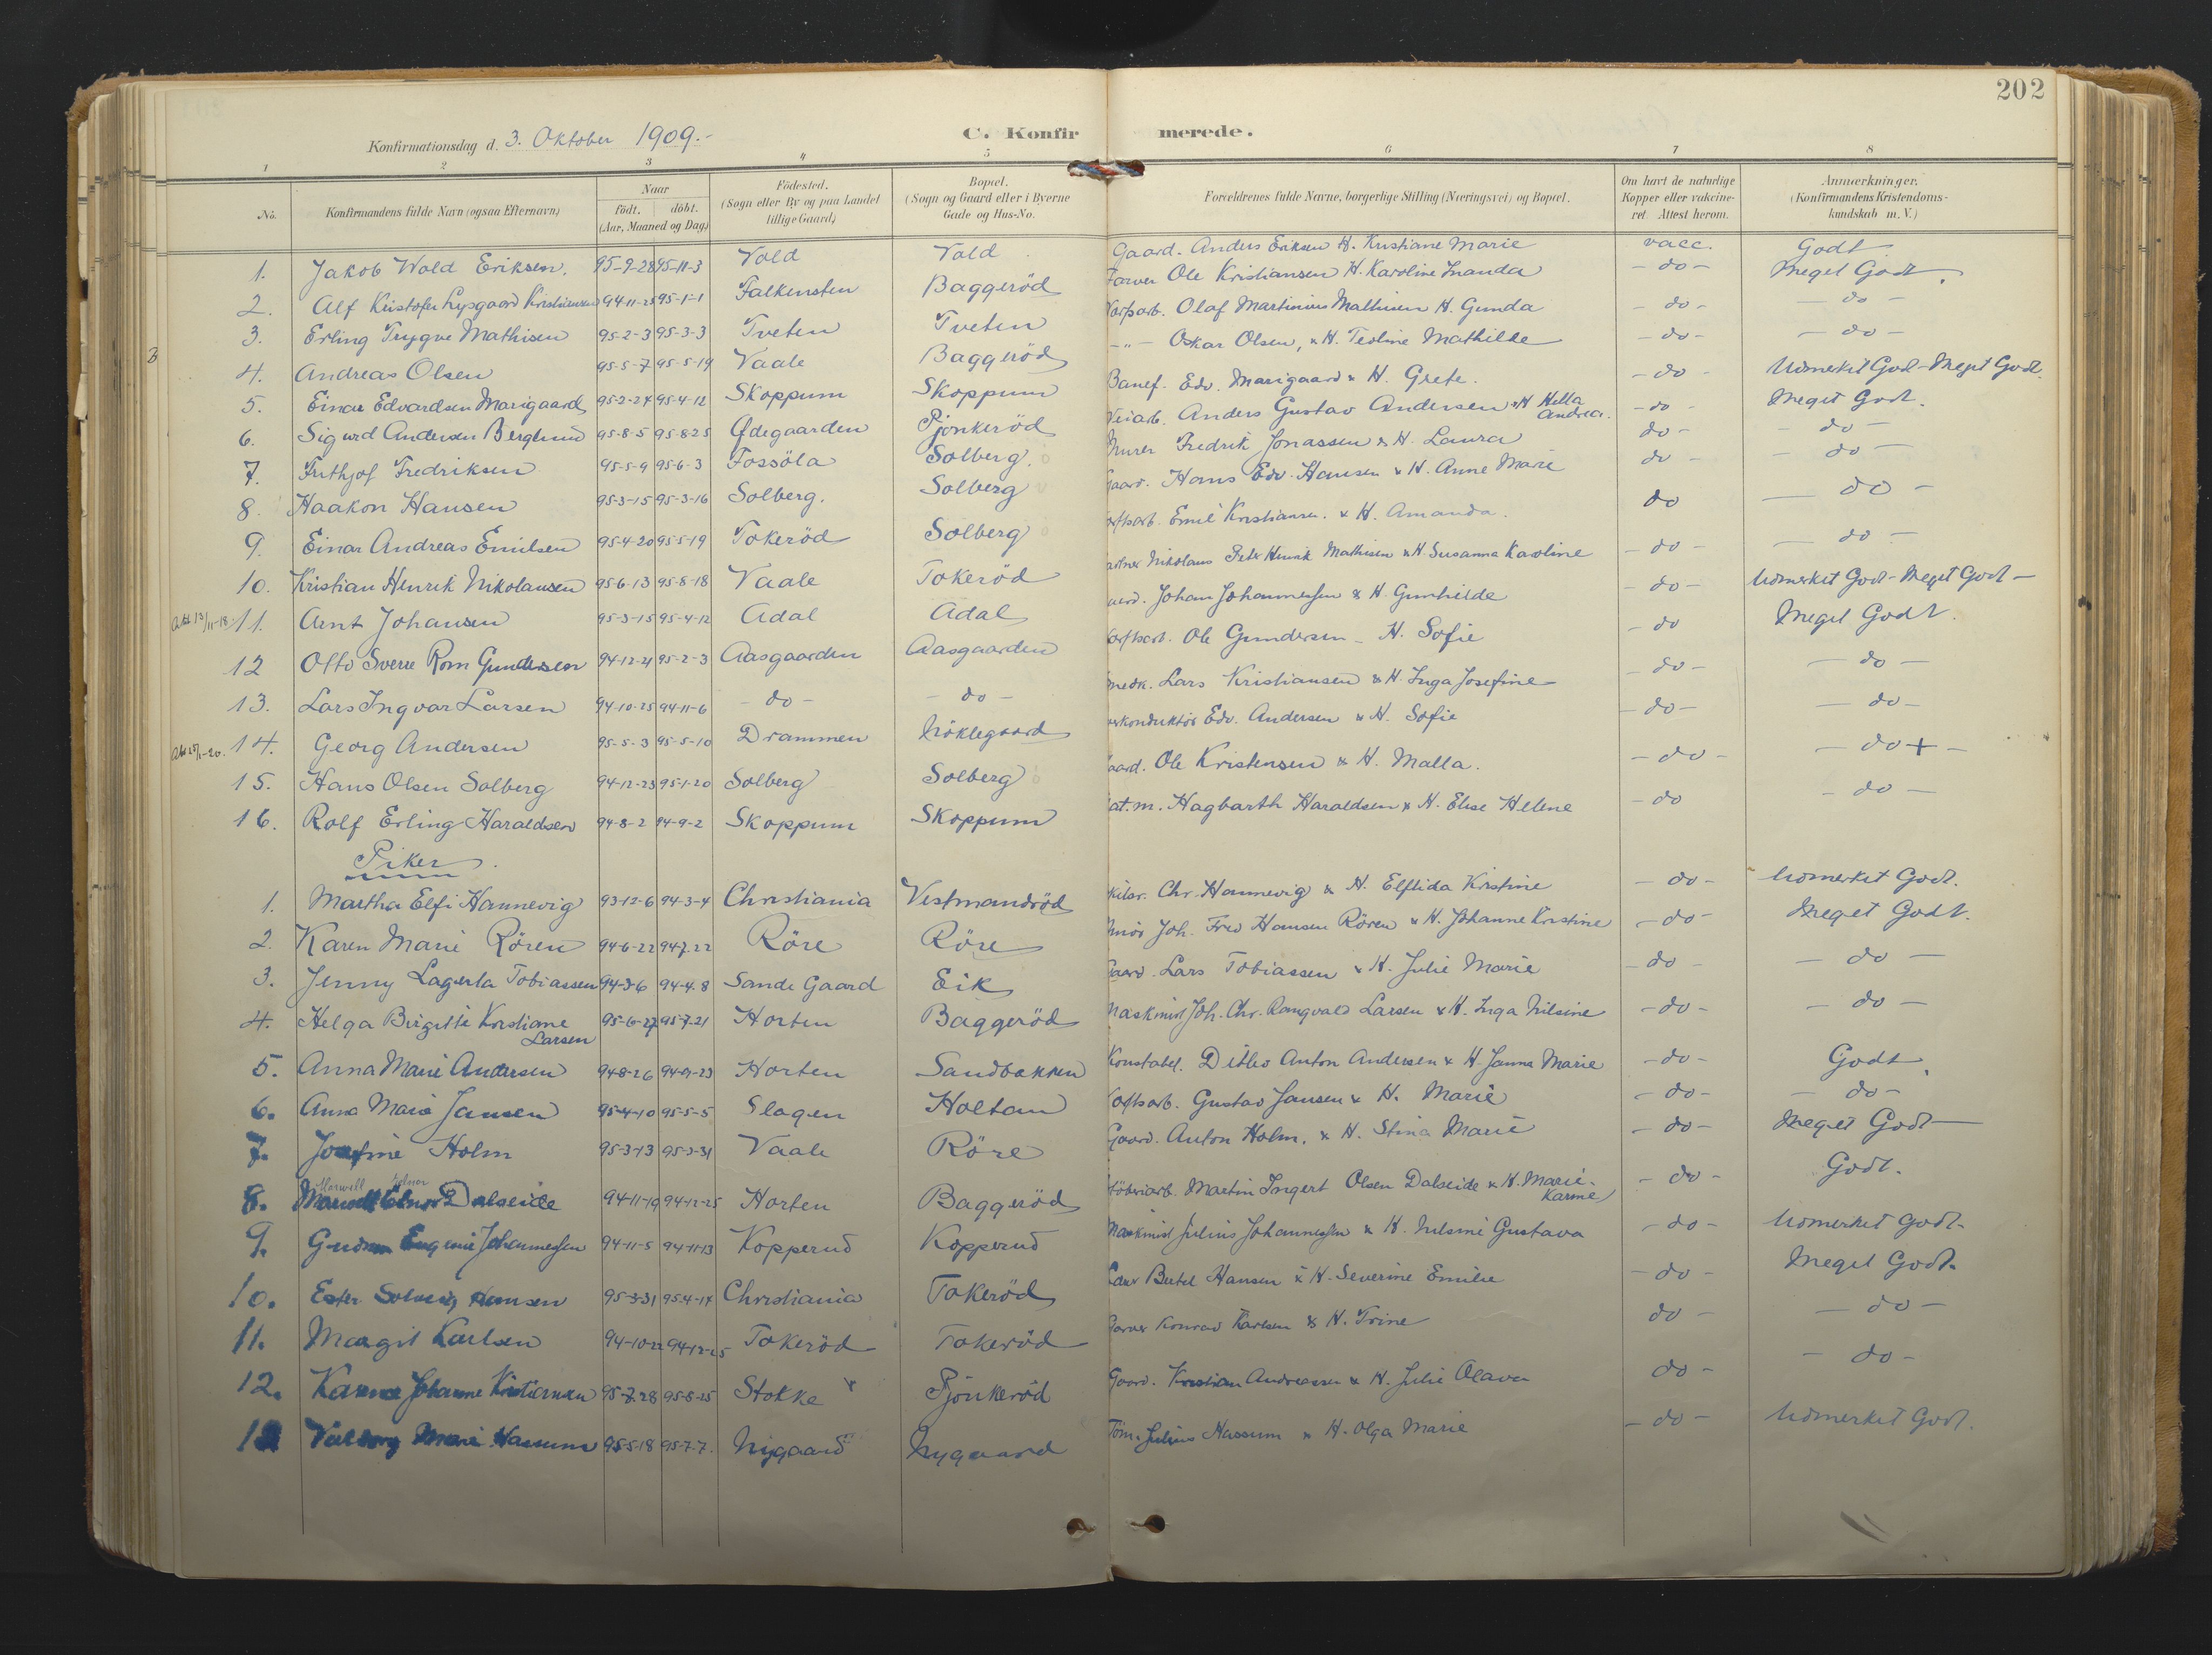 202
Konfirmationsdag d. 3. Oktober 1909.-
C. Konfirmerede.
1 2 3 4 5 6 7 8
No. Konfirmandens fulde Navn (ogsaa Efternavn) Naar födt. döbt. (Aar, Maaned og Dag) Födested. (Sogn eller By og paa Landet tillige Gaard) Bopæl. (Sogn og Gaard eller i Byerne Gade og Hus-No. Forældrenes fulde Navne, borgerlige Stilling (Næringsvei) og Bopæl. Om havt de naturlige Kopper eller vakcineret. Attest herom. Anmærkninger. (Konfirmandens Kristendomskundskab m. V.)
1. Jakob Wold Eriksen. 95-9-28 95-11-3 Vold Vold Gaard. Anders Eriksen H. Kristiane Marie vacc. Godt
2. Alf Kristofer Lysgaard Kristiansen 94-11-25 95-1-1 Falkensten Baggeröd Farver Ole Kristiansen H. Karoline Inanda - do - Meget Godt.
3. Erling Trygve Mathisen 95-2-3 95-3-3 Tveten Tveten Olaf Martinius Mathisen H. Gunda - do - - do -
4. Andreas Olsen 95-5-7 95-5-19 Vaale Baggeröd - " - Oskar Olsen, & H. Teoline Mathilde - do - - do -
5. Einar Edvardsen Marigaard 95-2-24 95-4-12 Skoppum Skoppum Banef. Edv. Marigaard & H. Grete. - do - Udmerket God - Meget Godt.
6. Sigurd Andersen Berglund 95-8-5 95-8-25 Ødegaarden Pjonkeröd Veiarb. Anders Gustav Andersen & H Hilla Andrea. - do - Meget Godt.
7. Frithjof Fredriksen 95-5-9 95-6-3 Fossöla Solberg. Murer Fredrik Jonassen & H. Laura do - - do -
8. Haakon Hansen 95-3-15 95-3-16 Solberg. Solberg Gaard. Hans Edv. Hansen & H. Anne Marie do - - do -
9. Einar Andreas Emilsen 95-4-20 95-5-19 Tokeröd Solberg Emil Kristiansen. & H. Amanda. do - do -
10. Kristian Henrik Nikolausen 95-6-13 95-8-18 Vaale Tokeröd Nikolaus Peter Henrik Mathisen & H. Susanna Karoline - do - - do -
Att 13/11-18 11. Arnt Johansen 95-3-15 95-4-12 Adal Adal Johan Johannesen & H. Gunhilde - do - Udmerket Godt - Meget Godt -
12 Otto Sverre Rom Gundersen 94-12-21 95-2-3 Aasgaarden Aasgaarden Ole Gundersen - H. Sofie - do Meget Godt.
13. Lars Ingvar Larsen 94-10-25 94-11-6 - do - - do - Smedk. Lars Kristiansen & H. Inga Josefine - do - - do -
14. Georg Andersen 95-5-3 95-5-10 Drammen Edv. Andersen & H. Sofie - do - - do -
15. Hans Olsen Solberg 94-12-23 95-1-20 Solberg Solberg Gaard. Ole Kristensen & H. Malla. - do - - do + -
16. Rolf Erling Haraldsen 94-8-2 94-9-2 Skoppum Skoppum Hagbarth Haraldsen & H. Elise Helene - do - do -
Piker.
1. Martha Elfi Hannevig 93-12-6 94-3-4 Christiania Vestmandröd Chr. Hannevig & H. Elflida Kristine - do - Udmerket Godt.
2. Karen Marie Rören 94-6-22 94-7-22 Röre Röre Joh. Fred Hansen Rören & H. Johanne Kristine - do - Meget Godt.
3. Jenny Lagerta Tobiassen 94-3-6 94-4-8 Sande Gaard Eik Gaard. Lars Tobiassen & H. Julie Marie - do - - do -
4. Helga Birgitte Kristiane Larsen 95-6-27 95-7-21 Horten Baggeröd Maskinist Joh. Chr. Rangvald Larsen & H. Inga Nilsine - do - - do -
5. Anna Marie Andersen 94-8-26 94-9-23 Horten Sandbakken Konstabel. Ditlev Anton Andersen & H. Janna Marie - do - Godt.
6. Anna Marie Jansen 95-4-10 95-5-5 Slagen Holtan Gustav Jansen & H. Marie - do - - do -
7. Josefine Holm 95-3-13 95-3-31 Vaale Röre Gaard. Anton Holm. & H. Stina Marie - do - Meget Godt -
8. Dalseide 94-11-19 94-12-25 Horten Baggeröd Støberiarb. Martin Ingert Olsen Dalseide & H. Marie Karine - do - Godt.
9. Gudrun Eugenie Johannessen 94-11-5 94-11-13 Kopperud Kopperud Maskinist Julius Johannessen & H. Nilsine Gustava - do - Udmerket Godt.
10. Ester Solveig Hansen 95-3-31 95-4-14 Christiania Tokeröd Bertel Hansen & H. Severine Emilie - do - Meget Godt.
11. Margit Karlsen 94-10-22 94-12-25 Tokeröd Tokeröd Garver Konrad Karlsen & H. Trine do - - do -
12. Johanne Kristiansen 95-7-28 95-8-25 Stokke Pjönkeröd Gaard. Kristian Andreassen & H. Julie Olava do - - do -
13 Valborg Marie Hassum 95-5-18 95-7-7. Nygaard Nygaard Töm. Julius Hassum & H. Olga Marie - do - Udmerket Godt.